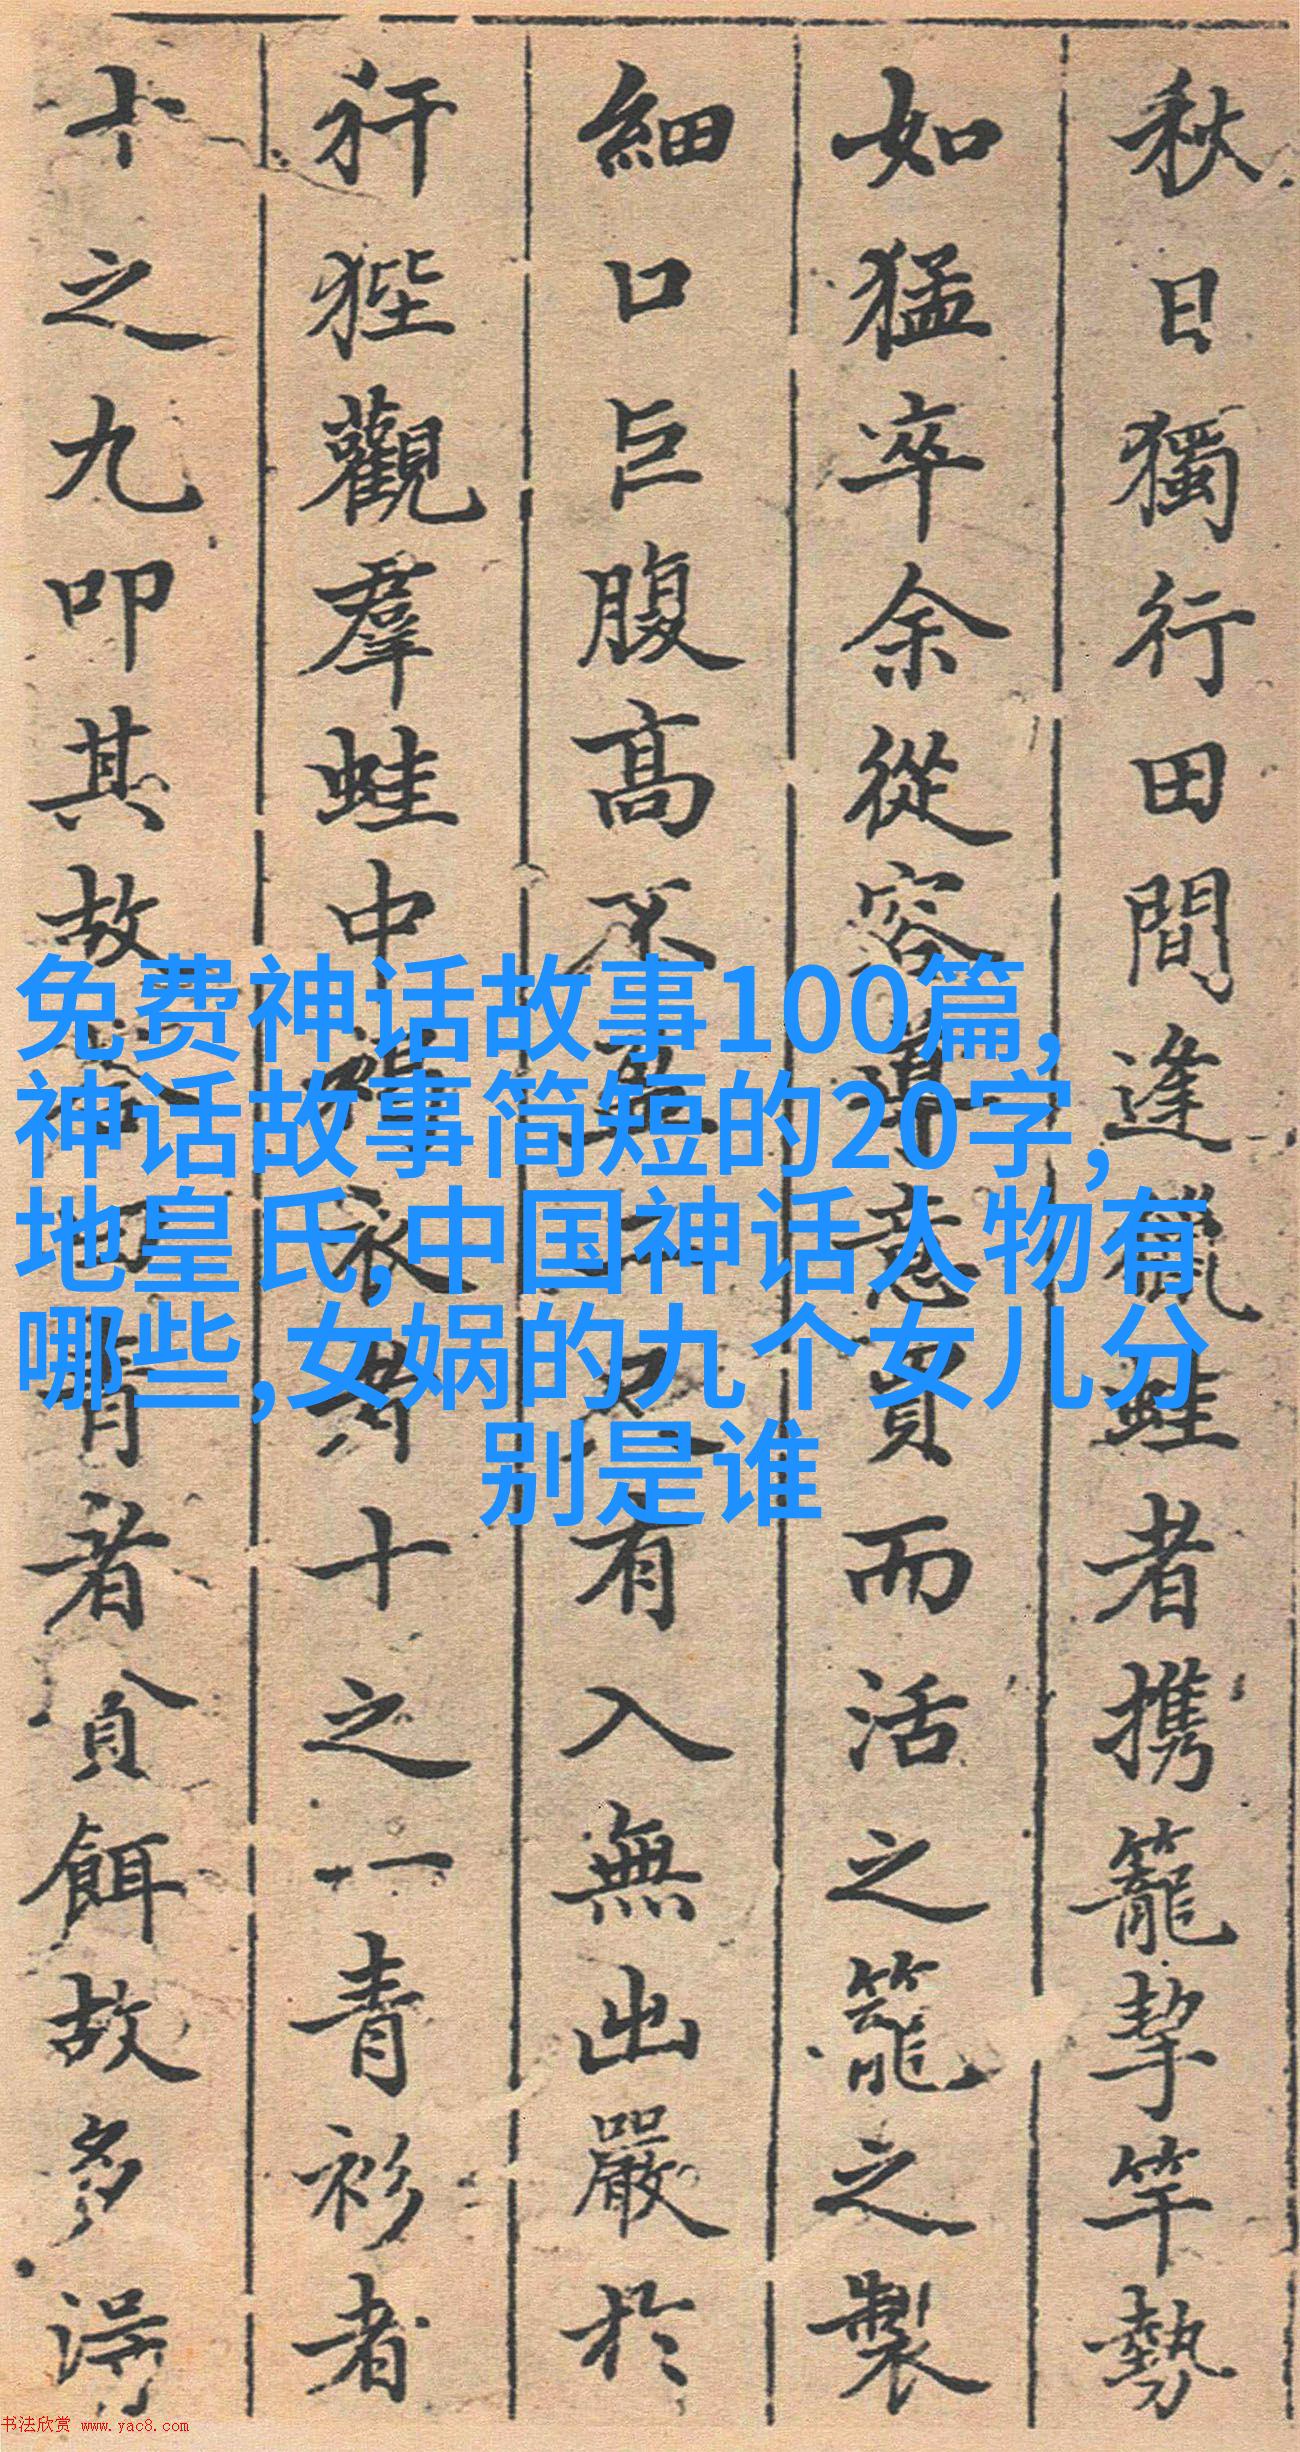 秋日獨行田間逢獵蛙者携籠挈竿勢
如猛卒余從容意買而活之籠之製
細口巨腹高不盈二尺有入無出嚴於
犴狴觀羣蛙中衣者十之一青衫者
十之九叩其故答曰青者貪餌故多得
免费神话故事100篇,
神话故事简短的20字,
地皇氏,中国神话人物有
哪些,女娲的九个女儿分
别是谁
书法欣赏 www.yac8.com